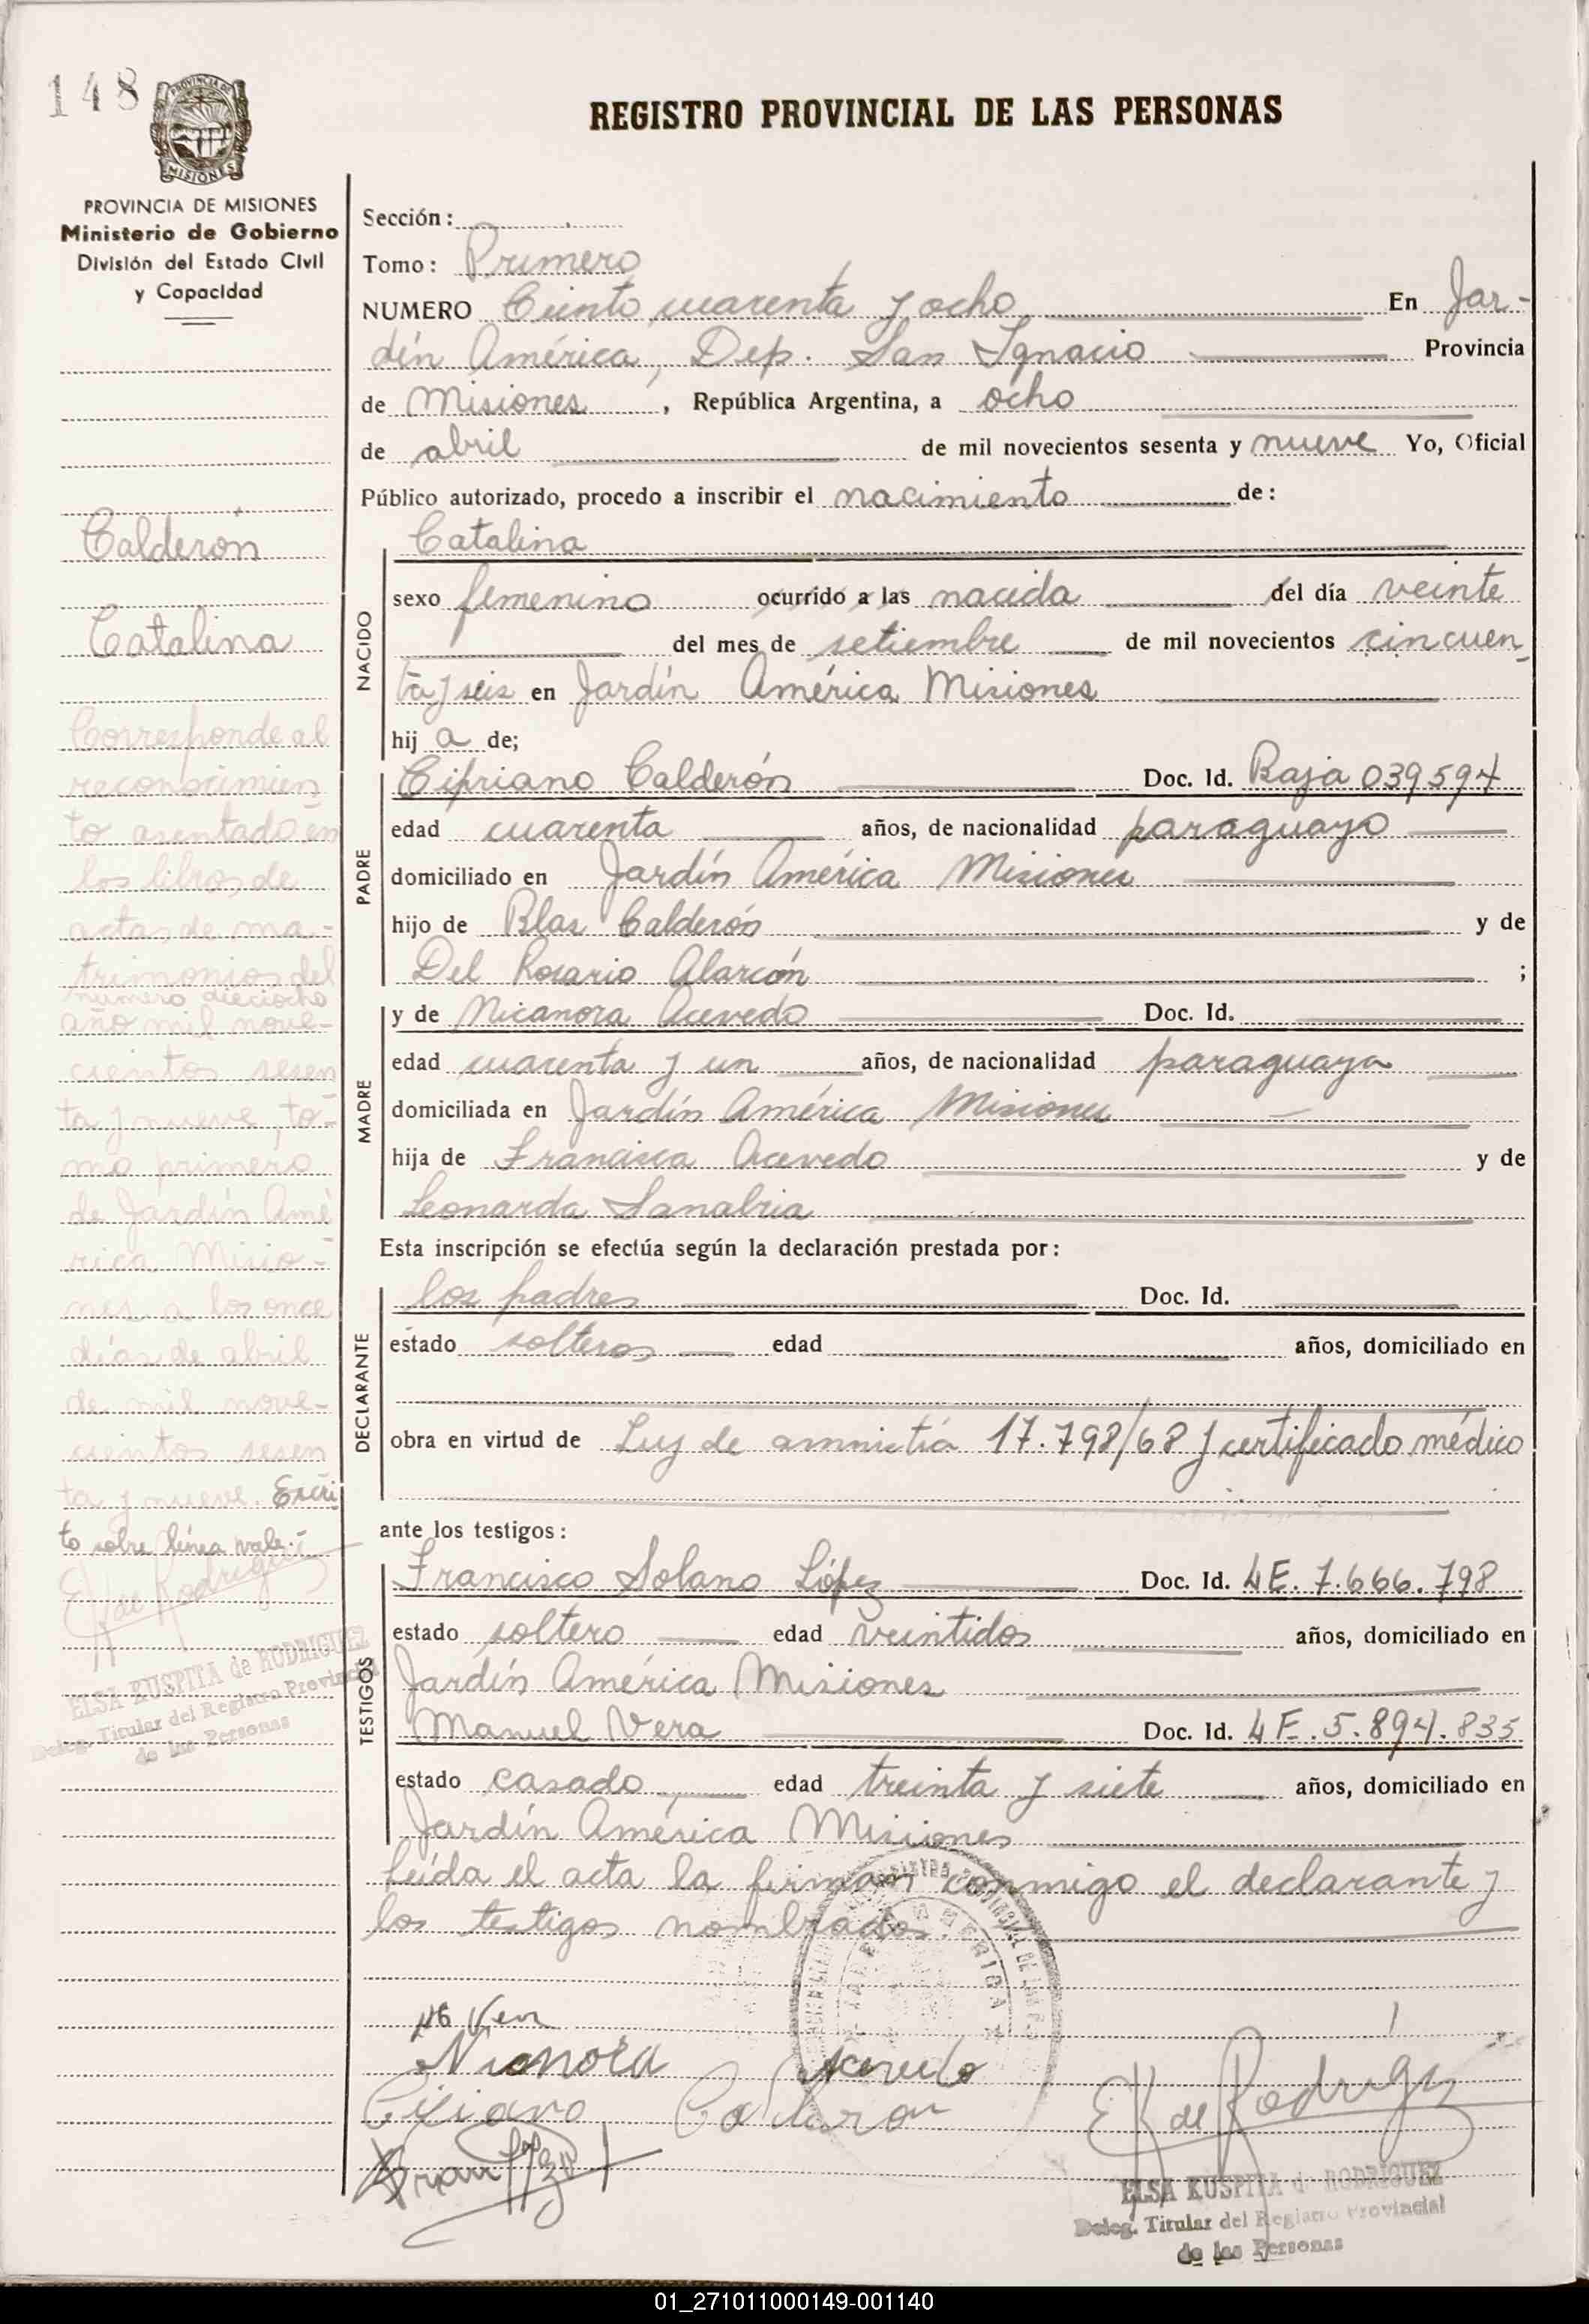 148
PROVINCIA DE MISIONES
PROVINCIA DE MISIONES
Ministerio de Gobierno
División del Estado Civil
y Capacidad
REGISTRO PROVINCIAL DE LAS PERSONAS
Sección:
Tomo: Primero
NUMERO Ciento cuarenta y ocho En Jar-
dín América, Dep. San Ignacio Provincia
de Misiones, República Argentina, a ocho
de abril de mil novecientos sesenta y nueve Yo, Oficial
Público autorizado, procedo a inscribir el nacimiento de:
Catalina
NACIDO
sexo femenino ocurrido a las nacida del día veinte
del mes de setiembre de mil novecientos cincuen
ta y seis en Jardín América Misiones
hij a de;
PADRE
Cipriano Calderón Doc. Id. Baja 039594
edad cuarenta años, de nacionalidad paraguayo
domiciliado en Jardín América Misiones
hijo de Blas Calderón y de
Del Rosario Alarcón ;
MADRE
y de Nicanora Acevedo Doc. Id.
edad cuarenta y un años, de nacionalidad paraguaya
domiciliada en Jardín América Misiones
hija de Francisca Acevedo y de
Leonarda Sanabria
Esta inscripción se efectúa según la declaración prestada por:
DECLARANTE
los padres Doc. Id.
estado solteros edad años, domiciliado en
obra en virtud de Ley de amnistía 17.798/68 y certificado médico
ante los testigos:
TESTIGOS
Francisco Solano López Doc. Id. LE. 7.666.798
estado soltero edad veintidos años, domiciliado en
Jardín América Misiones
Manuel Vera Doc. Id. LE. 5.894.835
estado casado edad treinta y siete años, domiciliado en
Jardín América Misiones
Leída el acta la firman conmigo el declarante y
los testigos nombrados.
Calderón
Catalina
Corresponde al
reconocimien
to asentado en
los libros de
actas de ma-
trimonios del
numero dieciocho
año mil nove-
cientos sesen
ta y nueve, to-
mo primero
de Jardín Amé
rica Misio-
nes a los once
días de abril
de mil nove-
cientos sesen
ta y nueve. Escri
to sobre línea vale.-
E K de Rodriguez
ELSA KUSPITA de RODRIGUEZ
Deleg. Titular del Registro Provincial
de las Personas
Nicanora Acevedo
Cipriano Calderon
E K de Rodriguez
ELSA KUSPITA de RODRIGUEZ
Deleg. Titular del Registro Provincial
de las Personas
01_271011000149-001140